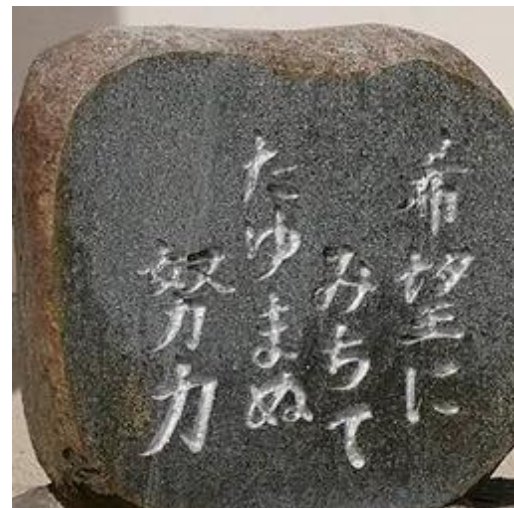 希望に
みちて
たゆまぬ
努力